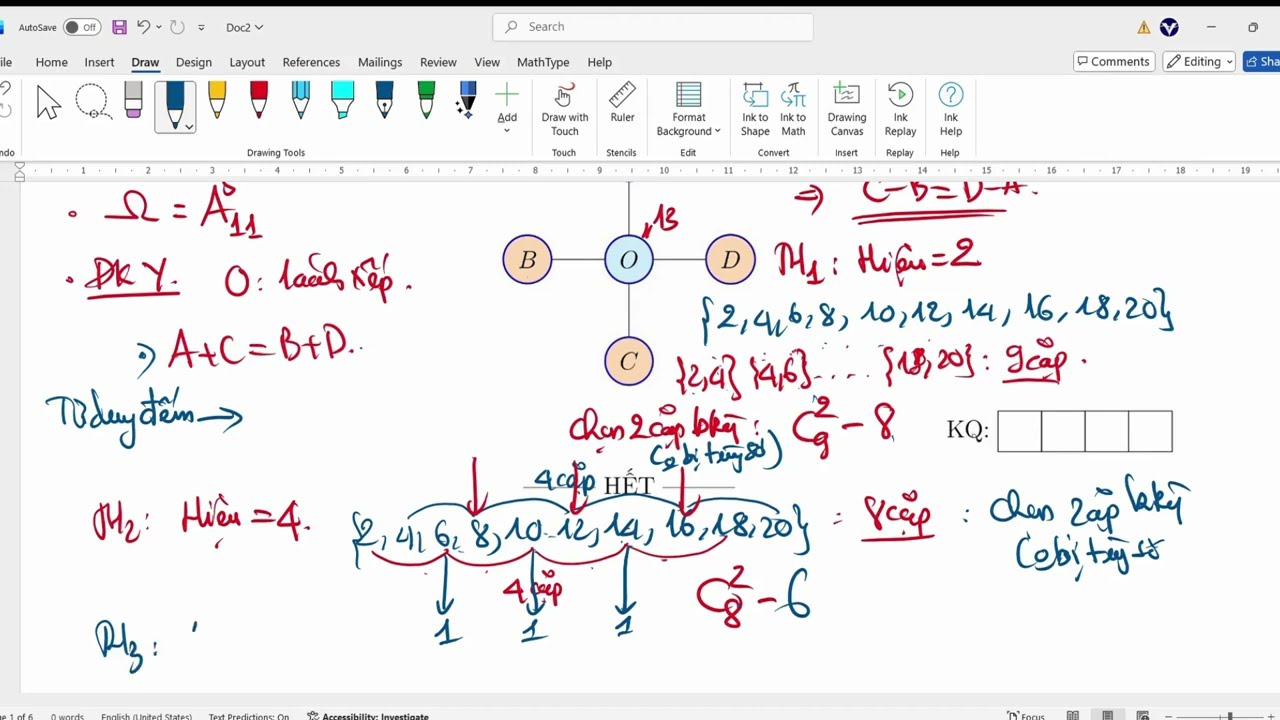 AutoSave Off Doc2 Search
ile Home Insert Draw Design Layout References Mailings Review View MathType Help Comments Editing Sha
ndo Add Draw with Touch Ruler Format Background Ink to Shape Ink to Math Drawing Canvas Ink Replay Ink Help
Drawing Tools Touch Stencils Edit Convert Insert Replay Help
1 2 3 4 5 6 7 8 9 10 11 12 13 14 15 16 17 18 19
⇒ C-B=D-A.
• Ω = A 11
13
B O D
TH1: Hiệu=2
• ĐK Y. O: lành xấp.
{2,4,6,8,10,12,14,16,18,20}
⇒ A+C=B+D.
C
{2,4} {4,6} .... {18,20}: 9cặp.
Tư duy đếm →
chọn 2 cặp bkỳ: C²₉ - 8
KQ:
(có bị trùng số)
4 cặp HẾT
TH2: Hiệu=4. {2,4,6,8,10,12,14,16,18,20} = 8cặp: chọn 2 cặp bkỳ
(có bị trùng số
4 cặp C²₈ - 6
1 1 1
TH3:
ge 1 of 6 0 words English (United States) Text Predictions: On Accessibility: Investigate Focus